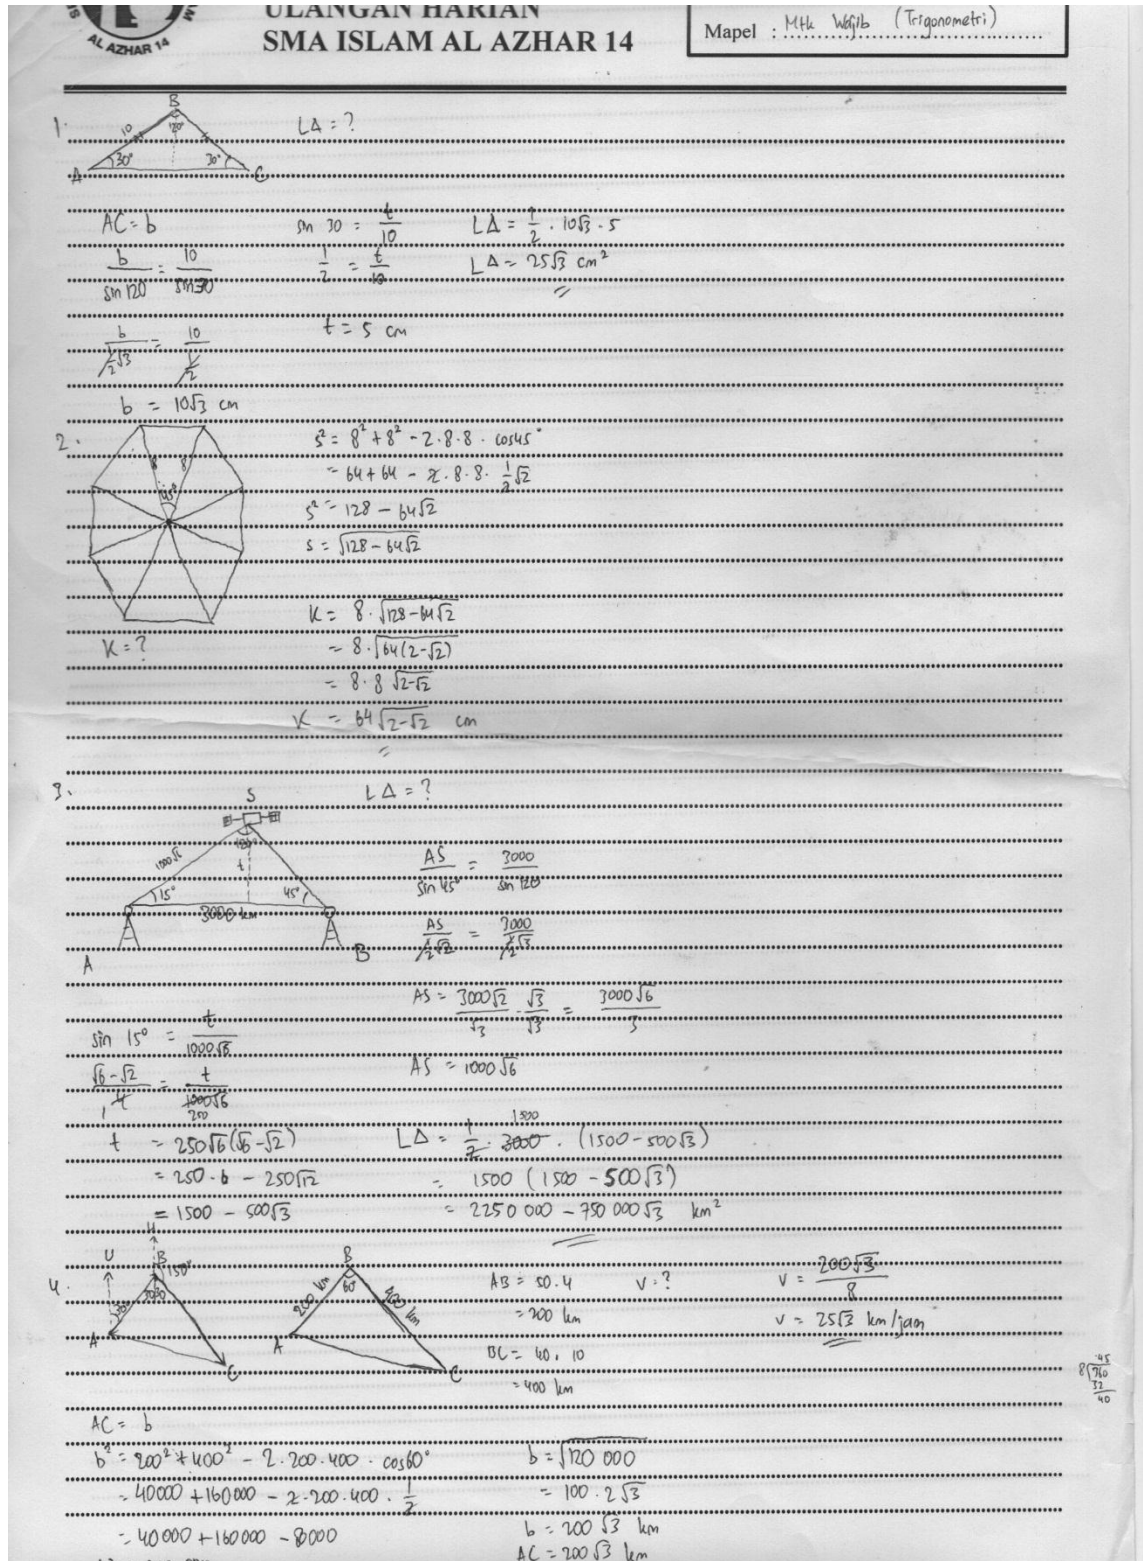 ULANGAN HARIAN
SMA ISLAM AL AZHAR 14
AL AZHAR 14
Mapel : Mtk Wajib (Trigonometri)
1.
B
10
120°
30°
30°
A
C
L∆ = ?
AC = b
b/sin 120 = 10/sin 30
b/(1/2√3) = 10/(1/2)
b = 10√3 cm
sin 30 = t/10
1/2 = t/10
t = 5 cm
L∆ = 1/2 . 10√3 . 5
L∆ = 25√3 cm²
2.
8
8
45°
K = ?
s² = 8² + 8² - 2.8.8 . cos45°
= 64 + 64 - 2.8.8. 1/2√2
s² = 128 - 64√2
s = √(128 - 64√2)
K = 8 . √(128 - 64√2)
= 8 . √(64(2-√2))
= 8.8 √(2-√2)
K = 64 √(2-√2) cm
3.
L∆ = ?
S
1000√6
120°
t
15°
45°
3000 km
A
B
AS/sin 45° = 3000/sin 120
AS/(1/2√2) = 3000/(1/2√3)
AS = 3000√2/√3 . √3/√3 = 3000√6/3
AS = 1000√6
sin 15° = t/1000√6
(√6 - √2)/4 = t/1000√6
1
250
t = 250√6(√6 - √2)
= 250 . 6 - 250√12
= 1500 - 500√3
1500
L∆ = 1/2 . 3000 . (1500 - 500√3)
= 1500 (1500 - 500√3)
= 2250 000 - 750 000√3 km²
4.
U
U
B
150°
30°
30
30
A
C
B
200 km
60
400 km
A
C
AB = 50.4
= 200 km
BC = 40 . 10
= 400 km
v = ?
v = 200√3/8
v = 25√3 km/jam
45
8 360
32
40
AC = b
b² = 200² + 400² - 2.200.400 . cos60°
= 40000 + 160000 - 2.200.400 . 1/2
= 40000 + 160000 - 8000
b = √120 000
= 100 . 2√3
b = 200√3 km
AC = 200√3 km